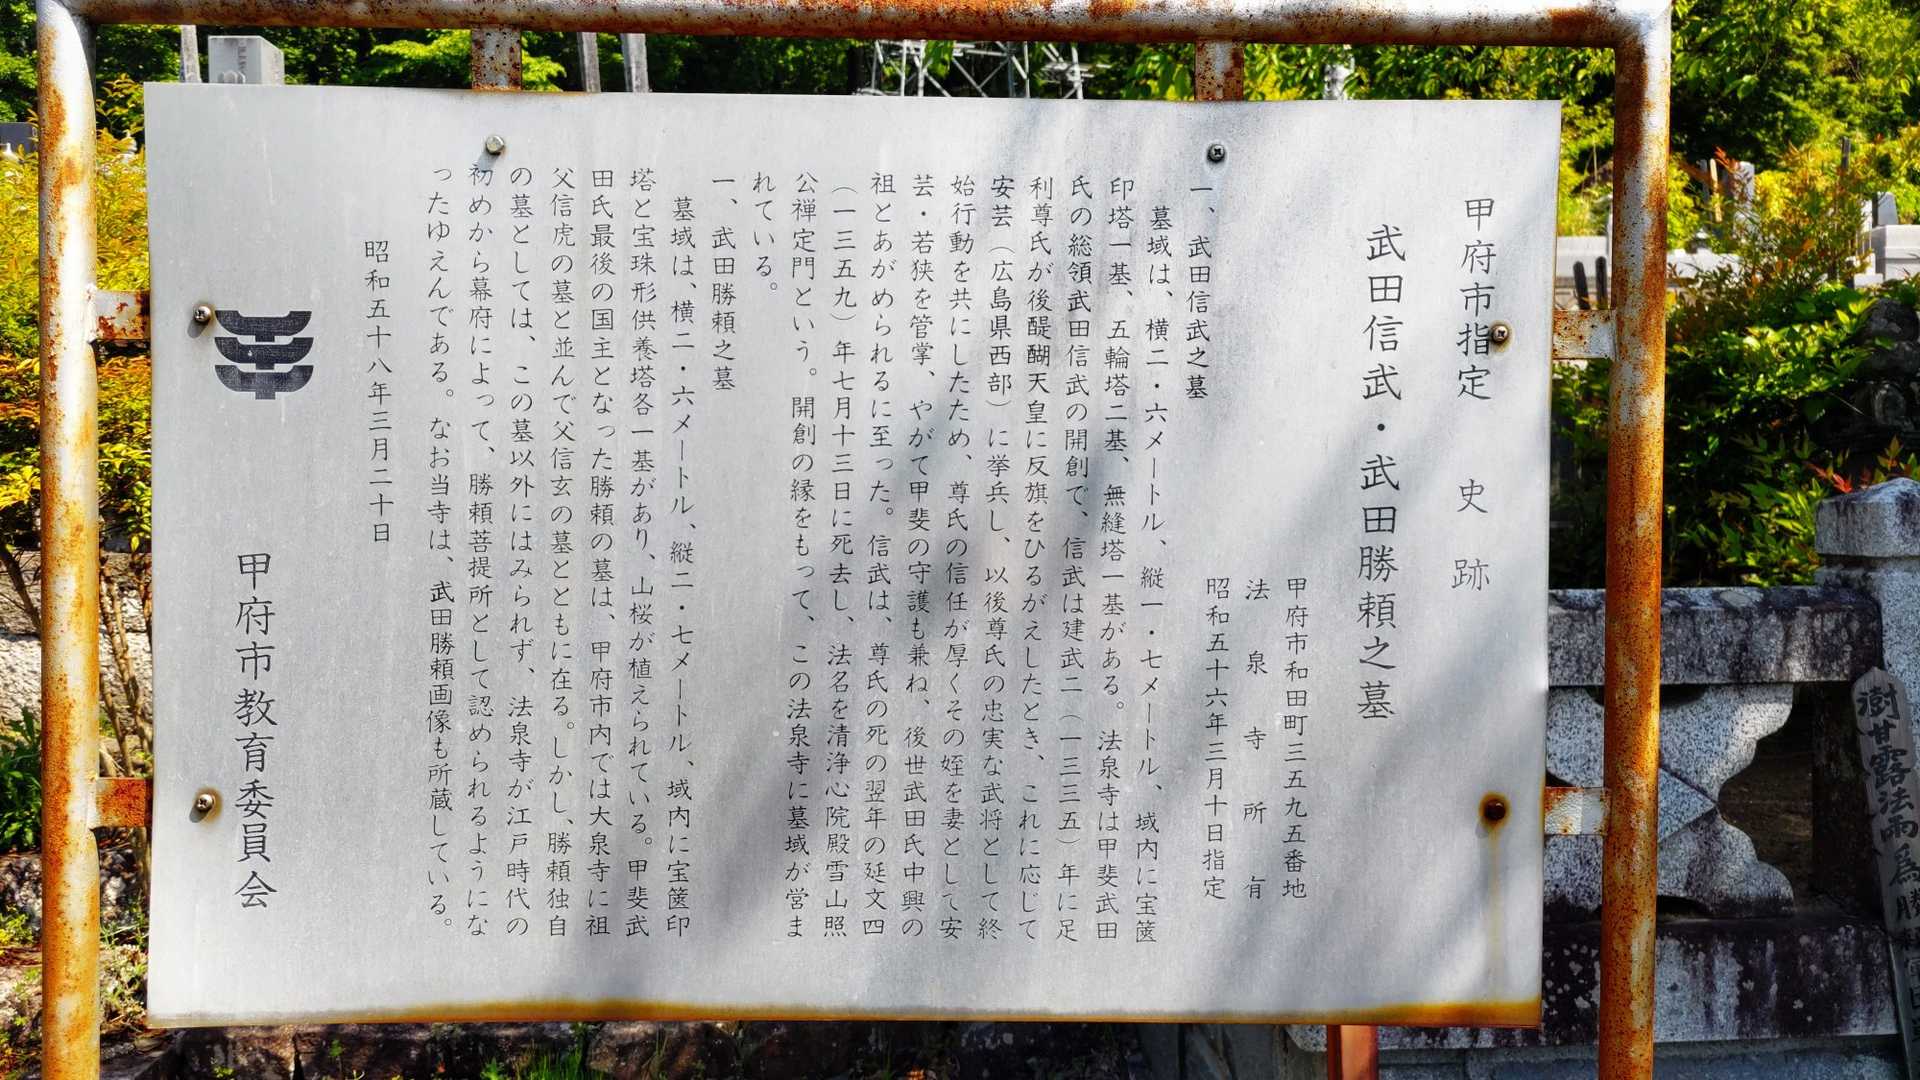 甲府市指定 史跡
武田信武・武田勝頼之墓
甲府市和田町三五九五番地
法泉寺所有
昭和五十六年三月十日指定
一、武田信武之墓
墓域は、横二・六メートル、縦一・七メートル、域内に宝篋
印塔一基、五輪塔二基、無縫塔一基がある。法泉寺は甲斐武田
氏の総領武田信武の開創で、信武は建武二（一三三五）年に足
利尊氏が後醍醐天皇に反旗をひるがえしたとき、これに応じて
安芸（広島県西部）に挙兵し、以後尊氏の忠実な武将として終
始行動を共にしたため、尊氏の信任が厚くその姪を妻として安
芸・若狭を管掌、やがて甲斐の守護も兼ね、後世武田氏中興の
祖とあがめられるに至った。信武は、尊氏の死の翌年の延文四
（一三五九）年七月十三日に死去し、法名を清浄心院殿雪山照
公禅定門という。開創の縁をもって、この法泉寺に墓域が営ま
れている。
一、武田勝頼之墓
墓域は、横二・六メートル、縦二・七メートル、域内に宝篋印
塔と宝珠形供養塔各一基があり、山桜が植えられている。甲斐武
田氏最後の国主となった勝頼の墓は、甲府市内では大泉寺に祖
父信虎の墓と並んで父信玄の墓とともに在る。しかし、勝頼独自
の墓としては、この墓以外にはみられず、法泉寺が江戸時代の
初めから幕府によって、勝頼菩提所として認められるようにな
ったゆえんである。なお当寺は、武田勝頼画像も所蔵している。
昭和五十八年三月二十日
甲府市教育委員会
樹甘露法雨為